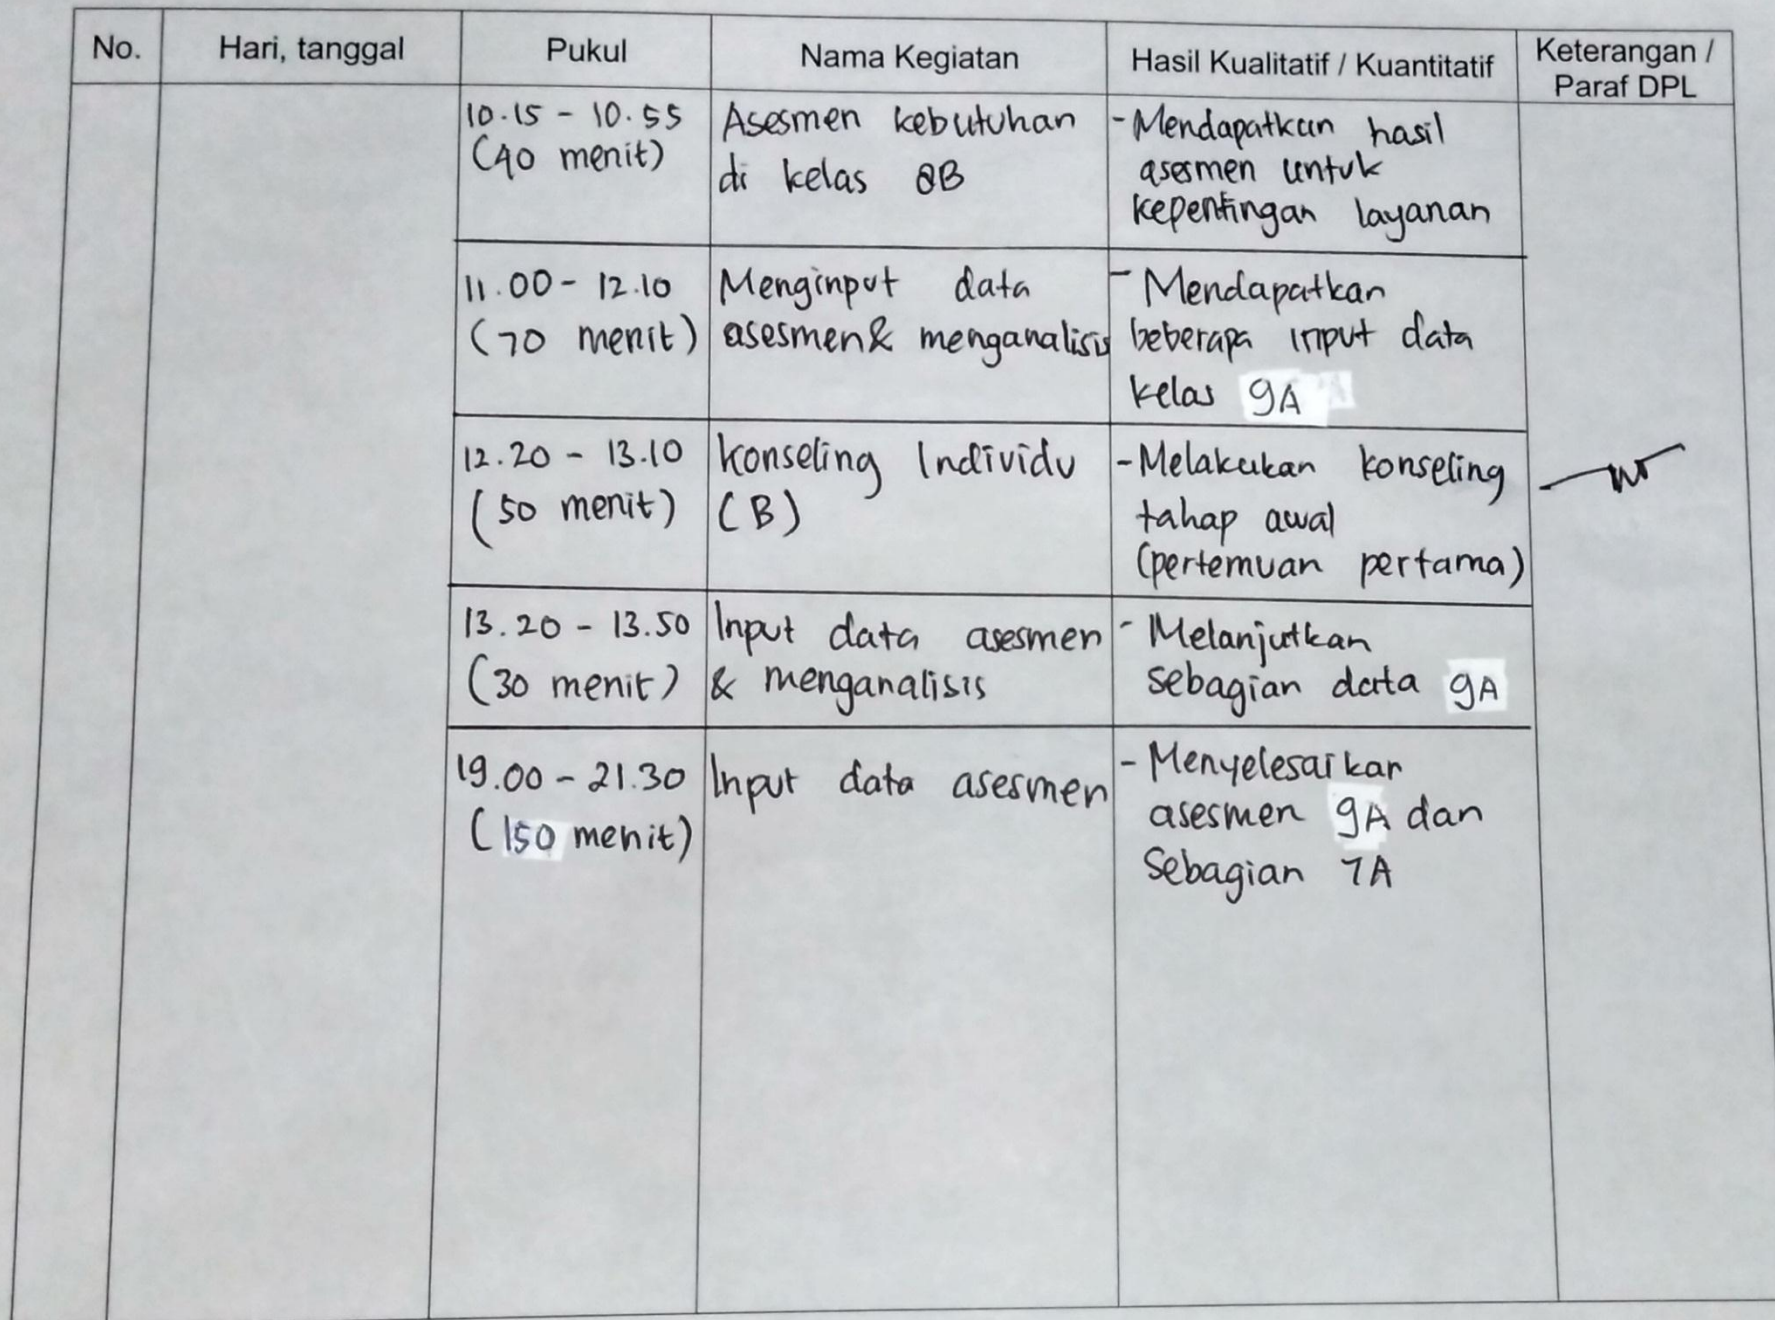 No. Hari, tanggal Pukul Nama Kegiatan Hasil Kualitatif / Kuantitatif Keterangan / Paraf DPL
10.15 - 10.55
(40 menit)
Asesmen kebutuhan
di kelas 8B
- Mendapatkan hasil
asesmen untuk
kepentingan layanan
11.00 - 12.10
(70 menit)
Menginput data
asesmen & menganalisis
- Mendapatkan
beberapa input data
kelas 9A
12.20 - 13.10
(50 menit)
Konseling Individu
(B)
- Melakukan konseling
tahap awal
(pertemuan pertama)
13.20 - 13.50
(30 menit)
Input data asesmen
& menganalisis
- Melanjutkan
sebagian data 9A
19.00 - 21.30
(150 menit)
Input data asesmen
- Menyelesaikan
asesmen 9A dan
Sebagian 7A